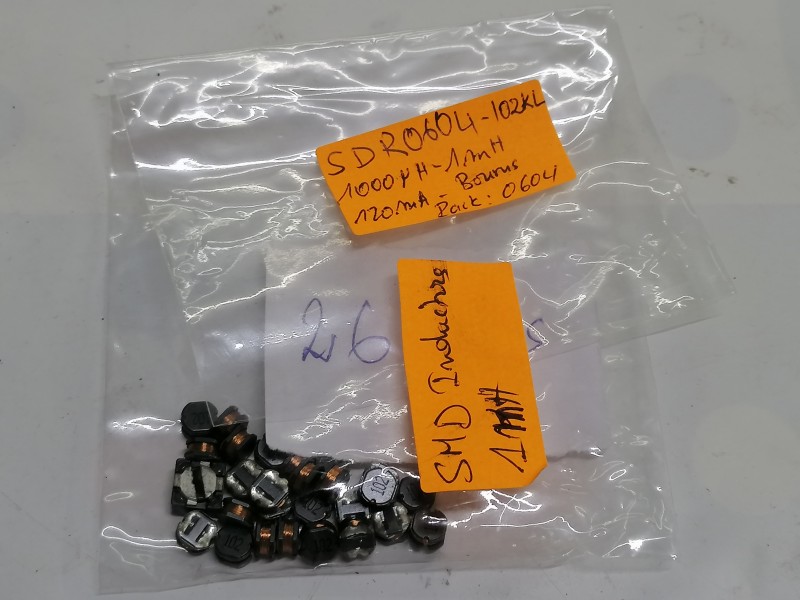 SDR0604-102KL
1000µH-1.mH
120mA - Bourns
Pack: 0604
26
SMD Inductors
1mH
102
102
102